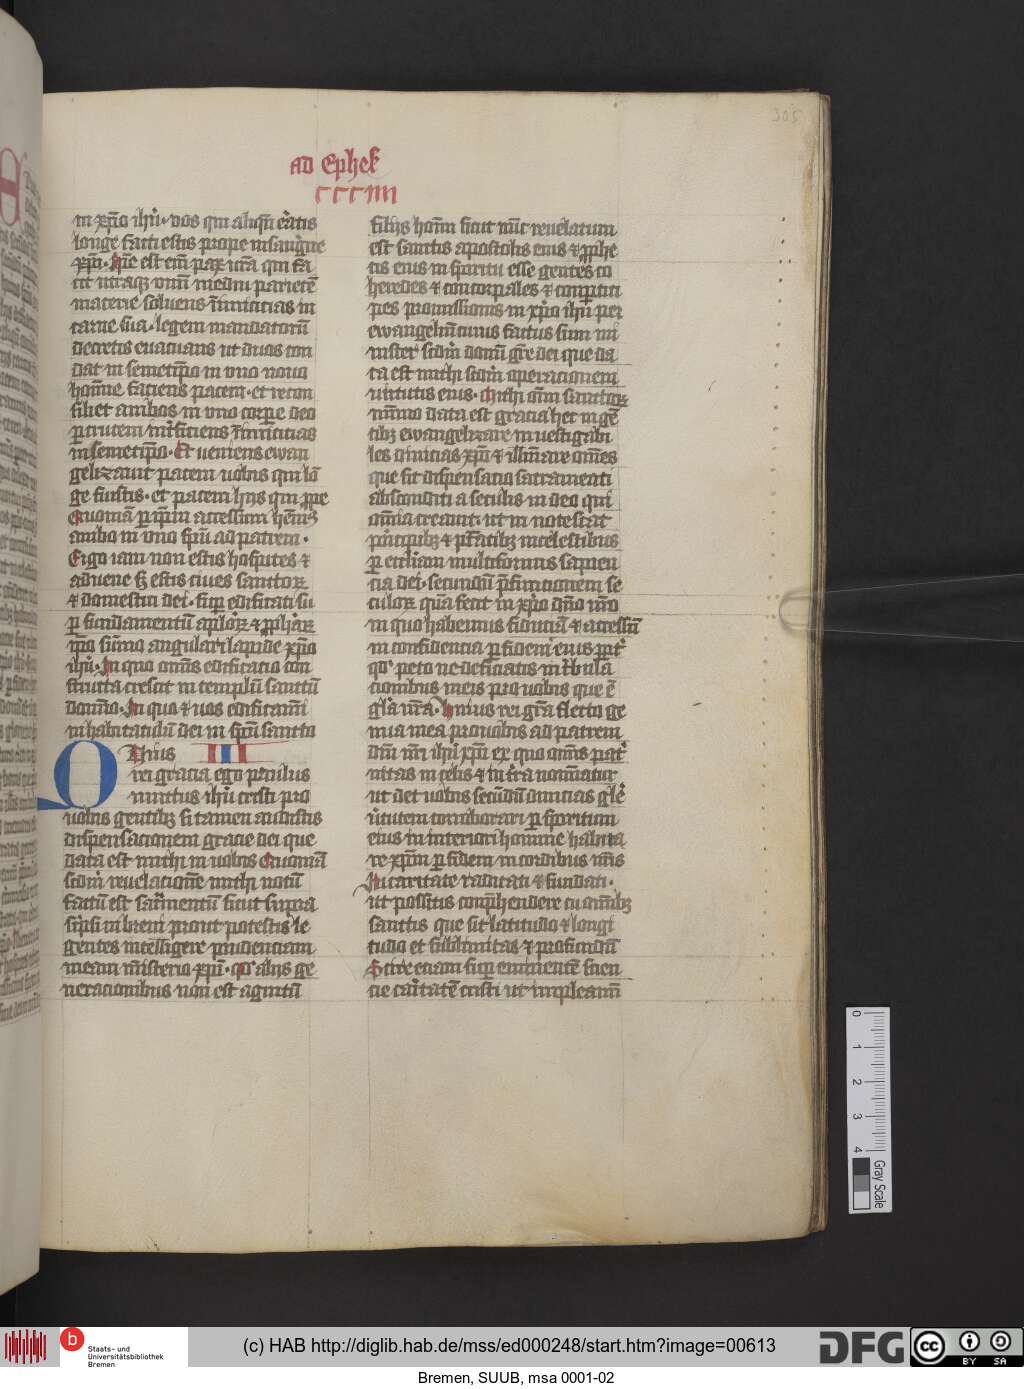 305
AD Ephes
CCCIIII
in xp̄o ihū · vos qui aliqn̄ er̄atis
longe facti estis prope in sangwine
xp̄i · Ip̄e est em̄ pax nr̄a qui fe
cit utraqꝫ vnū medium parietē
macerie soluens Inimicicias in
carne sua · legem mandatorū
decretis euacuans ut duos con
dat in semetip̄o in vno nouo
homīne faciens pacem · et recon
siliet ambos in vno corꝑe deo
ꝑ crucem int̄ficiens Inimicicias
in semetip̄o · Et veniens ewan
gelizauit pacem uobis qui lō
ge fuistis · et pacem hijs qui ꝓpe
Quoniā ꝑ ip̄m accessum hēmꝰ
ambo in vno sp̄u ad patrem ·
Ergo iam non estis hospites ⁊
aduene sꝫ estis ciues sanctoꝝ
⁊ domestici dei · suꝑ edificati su
ꝑ fundamentū apl̄oꝝ ⁊ ꝓph̄aꝝ
ip̄o sūmo angulari lapide xp̄o
ihū · In quo om̄is edificatio con
structa crescit in templū sanctū
domīo · In quo ⁊ uos edificamī
in habitaculū dei in sp̄u sancto
Huius III
rei gracia ego paulus
vinctus ihū cristi pro
uobis gentibꝫ si tamen audistis
dispensacionem gracie dei que
data est michi in uobis Quoniā
scdm̄ reuelacionē michi notū
factū est sac̄mentū sicut supra
sc̄psi in breui prout potestis le
gentes intelligere prudenciam
meam in misterio xp̄i · qd̄ alijs ge
neracionibus non est agnitū
filijs hoīm sicut nūc reuelatum
est sanctis apostolis eius ⁊ ꝓphe
tis eius in spiritu esse gentes co
heredes ⁊ concorpales ⁊ comꝑtici
pes promissionis in xp̄o ihū per
ewangeliū cuius factus sum mi
nister scdm̄ donū gr̄e dei que da
ta est michi scdm̄ operacionem
uirtutis eius · Michi om̄i sanctoꝝ
minimo data est gracia hec in gē
tibꝫ ewangelizare inuestigabi
les diuicias xp̄i ⁊ illūinare om̄es
que sit dispensatio sacramenti
absconditi a seculis in deo qui
om̄ia creauit · ut in notescat
principibꝫ ⁊ pt̄atibꝫ in celestibus
ꝑ eccl̄iam multiformis sapien
cia dei · secundū p̄finicionem se
culoꝝ quā fecit in xp̄o dn̄o nr̄o
in quo habemus fiduciā ⁊ accessū
in confidencia ꝑ fidem eius ꝓpt̄
qd̄ peto ne deficiatis in tͥbula
cionibus meis pro uobis que ē
gl̄a vr̄a · Huius rei gr̄a flecto ge
nua mea pro uobis ad patrem
dn̄i nr̄i ihū xp̄i ex quo om̄is pat̄
nitas in celis ⁊ in t̄ra nominatur
ut det uobis secūdū diuicias gl̄e
ūtutem corroborari ꝑ spiritum
eius in interiori homine habita
re xp̄m ꝑ fidem in cordibus nr̄is
In caritate radicati ⁊ fundati ·
ut possitis comp̄hendere cū om̄ibꝫ
sanctis que sit latitudo ⁊ longi
tudo et sublimitas ⁊ profundū
Scire eciam suꝑ eminentē scien
cie caritatē cristi ut impleamī
0 1 2 3 4
Gray Scale
b
Staats- und
Universitätsbibliothek
Bremen
(c) HAB http://diglib.hab.de/mss/ed000248/start.htm?image=00613
DFG
cc BY SA
Bremen, SUUB, msa 0001-02